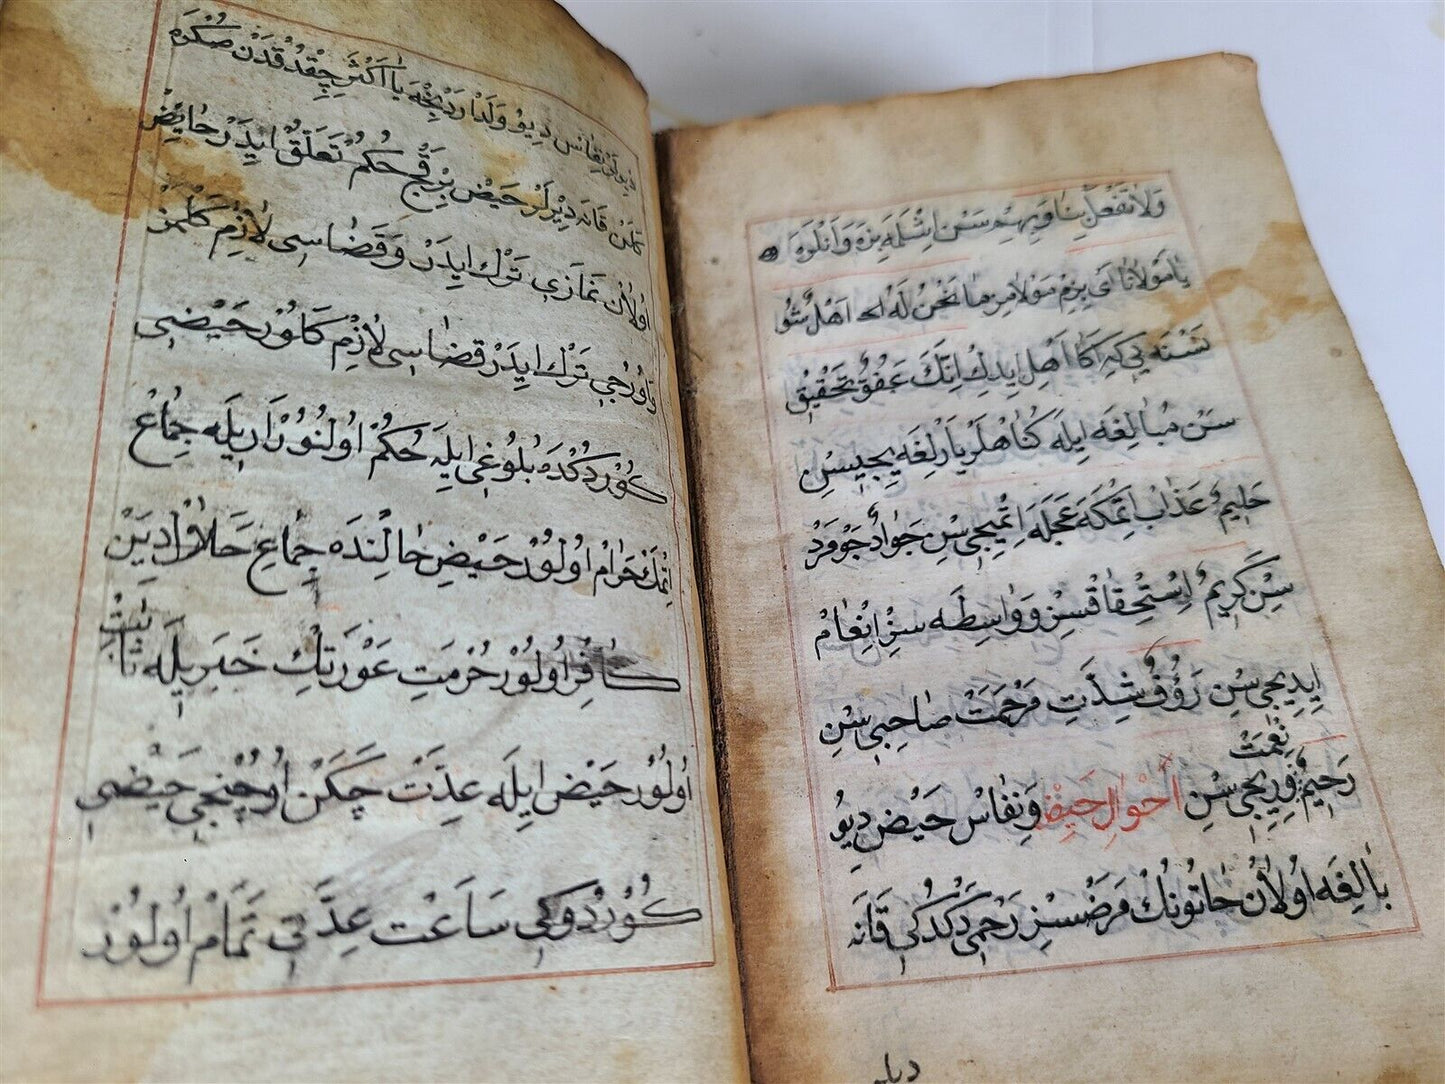 وَلَا تَفْعَلْ بِنَا وَبِهِمْ سَنْ اِشْلَمَه بِزَه وَ اَنْلَرَه
يَا مَوْلَانَا اَى بِزِمْ مَوْلَامِزْ مَا نَحْنُ لَهُ اَهْلٌ شُو
نَسْنَه يِى كِه اَكَا اَهْلِ اِيدِكْ اِنَّكَ عَفُوٌّ تَحْقِيقْ
سَنْ مُبَالِغَه اِيلَه كُنَاهْلَرْ يَارْلِغَه يِجِيسِنْ
حَلِيمٌ عَذَابْ اِتْمَكَه عَجَلَه اِتْمِيجِى سِنْ جَوَادٌ جُومَرْدْ
سِنْ كَرِيمٌ اِسْتِحْقَاقْسِزْ وَ وَاسِطَه سِزْ اِنْعَامْ
اِيدِيجِى سِنْ رَؤُفٌ شِدَّتِ مَرْحَمَتْ صَاحِبِى سِنْ
رَحِيمٌ نِعْمَتْ وِيرِيجِى سِنْ اَحْوَالِ حَيْض وَنِفَاسْ حَيْضْ دِيُو
بَالِغَه اُولَانْ خَاتُونُكْ مَرَضْسِزْ رَحْمِنْدَنْ كَلَنْ قَانَه
دیلر
نِفَاسْ دِيُو وَلَدْ يَا اَكْثَرِ چِقْدُقْدَنْ صُكْرَه
كَلَنْ قَانَه دِيرْلَرْ حَيْضْ بِرْ قَچْ حُكُمْ تَعَلُّقْ اِيدَرْ حَايِضْ
اُولَانْ نَمَازِى تَرْكْ اِيدَرْ وَقَضَاسِى لَازِمْ كَلْمَزْ
وَ اُورُجِى تَرْكْ اِيدَرْ قَضَاسِى لَازِمْ كَلُورْ حَيْضِى
كُورْدُكْدَه بُلُوغِى اِيلَه حُكُمْ اُولُنُورْ اَرِيلَه جِمَاعْ
اِتْمَكْ حَرَامْ اُولُورْ حَيْضِ حَالِنْدَه جِمَاعِ حَلَالْ دِيَنْ
كَافِرْ اُولُورْ حُرْمَتِ عَوْرَتِكْ خَبَرِيلَه ثَابِتْ
اُولُورْ حَيْضْ اِيلَه عِدَّتْ چَكَنْ اُوچُنْجِى حَيْضِى
كُورْدُوكِى سَاعَتْ عِدَّتِى تَمَامْ اُولُورْ